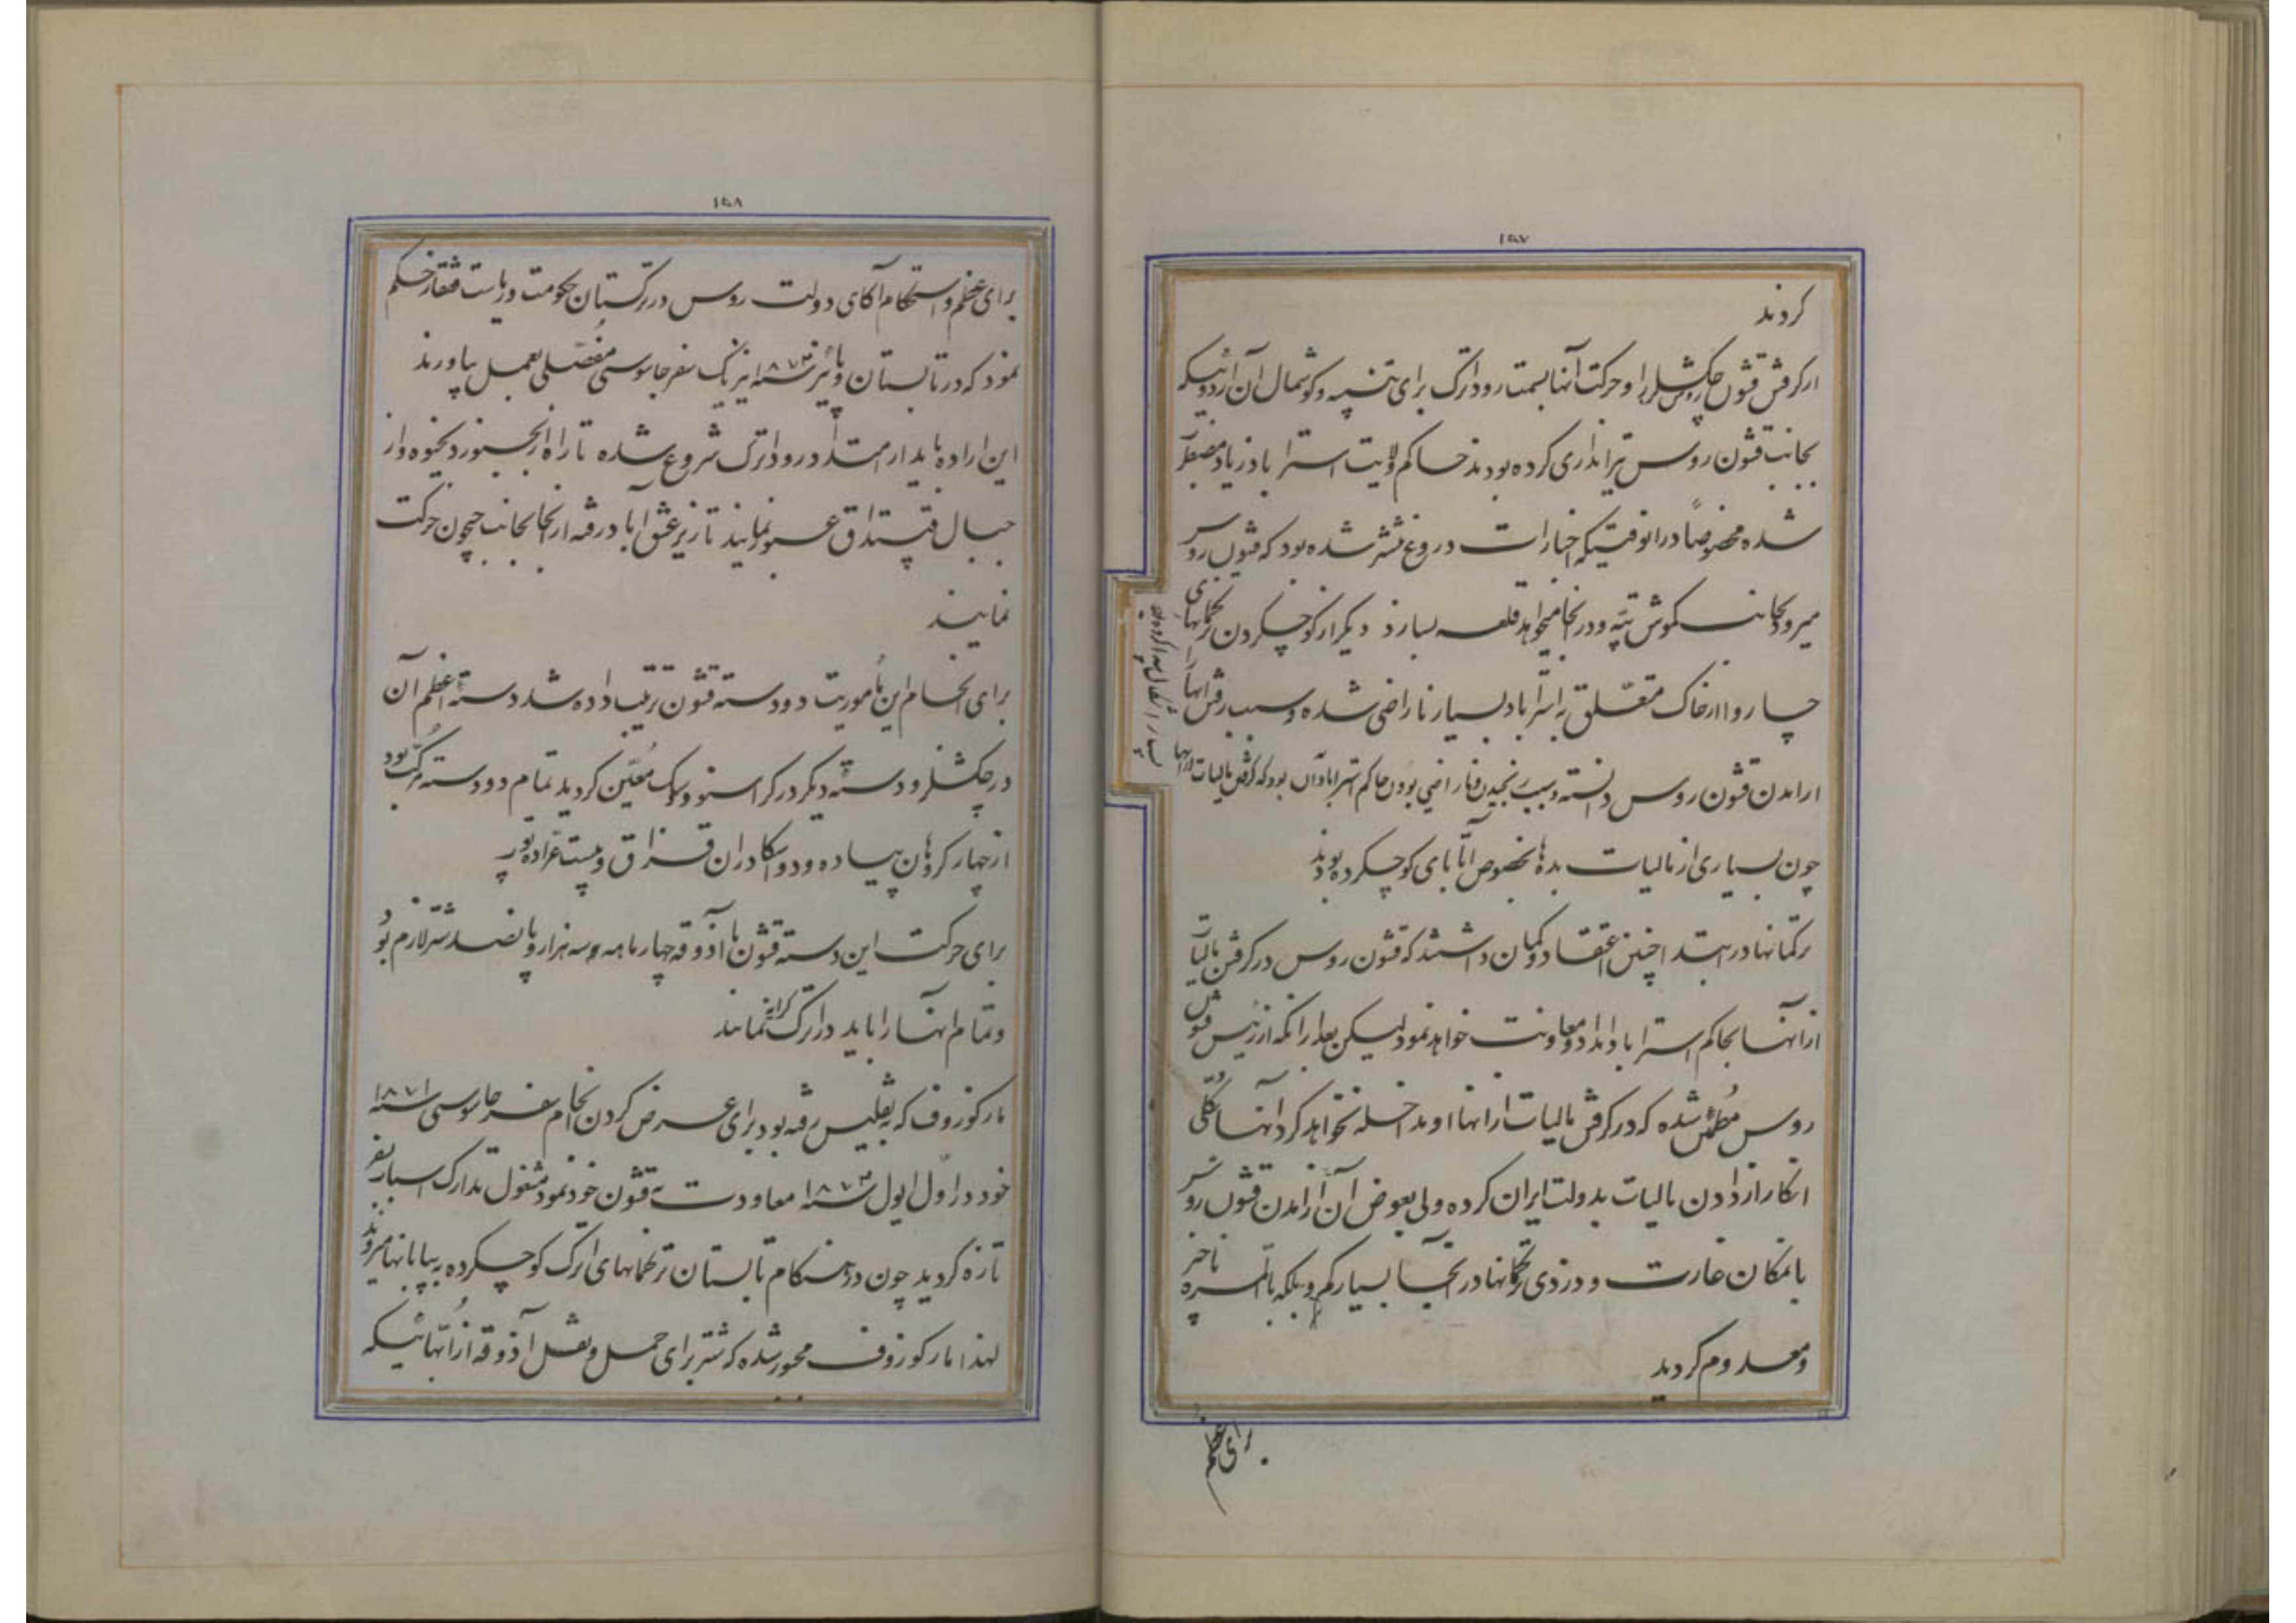 ۱۵۷
کردند
از گرفتن قشون روس چکشلر را و حرکت آنها بسمت رود اترک برای تنبیه و گوشمال آن اردوئیکه
بجانب قشون روس تیراندازی کرده بودند حاکم ولایت استراباد زیاد مضطر
شده مخصوصاً در انوقتیکه اخبارات دروغ منتشر شده بود که قشون روس
میرود بجانب کوش تپه و در انجا میخواهد قلعه بسازد دیگر از کوچکردن ترکمانهای
چاروا از خاک متعلق به استراباد بسیار ناراضی شده و سبب رفتن آنها را
از امدن قشون روس دانسته و سبب رنجیدن و ناراضی بودن حاکم استراباد آن بود که گرفتن مالیات از آنها
بسیار اشکال پیدا کرده بود
چون بسیاری از مالیات بده ها بخصوص اتابای کوچکرده بودند
ترکمانها در ابتدا چنین اعتقاد و گمان داشتند که قشون روس در گرفتن مالیات
از انها بحاکم استراباد امداد و معاونت خواهد نمود لیکن بعد از انکه از رئیس قشون
روس مطمئن شده که در گرفتن مالیات از انها او مداخله نخواهد کرد آنها بکلی
انکار از دادن مالیات بدولت ایران کرده ولی بعوض آن از امدن قشون روس
بامکان غارت و دزدی ترکمانها در آنجا بسیار کم و بلکه بالمره ناچیز
و معدوم گردید
برای عظم
۱۵۸
برای عظم و استحکام آکای دولت روس در ترکستان حکومت و ریاست قفقاز حکم
نمود که در تابستان و پائیز سنه ۱۸۷۲ نیز یک سفر جاسوسی مفصلی بعمل بیاورند
این اراده باید از امتداد رود اترک شروع شده تا راه از بجنورد بخیوه و از
جبال قپتداق عبور نمایند تا زیر عشق آباد رفته از انجا بجانب جیحون حرکت
نمایند
برای انجام این مأموریت دو دسته قشون ترتیب داده شد دسته اعظم آن
در چکشلر و دسته دیگر در کراسنوودسک معین گردید تمام دو دسته مرکب بود
از چهار گروهان پیاده و دو اسکادران قزاق و بیست عراده توپ
برای حرکت این دسته قشون با آذوقه چهار ماهه سه هزار و پانصد شتر لازم بود
و تمام انها را باید در اترک کرایه نمایند
مارکوزوف که به تفلیس رفته بود برای عرض کردن انجام سفر جاسوسی سنه ۱۸۷۱
خود در اول ایول سنه ۱۸۷۲ معاودت به قشون خود نمود مشغول تدارک اسباب سفر
تازه گردید چون در هنگام تابستان ترکمانهای اترک کوچکرده به بیابانها میروند
لهذا مارکوزوف مجبور شده که شتر برای حمل و نقل آذوقه از آنهائیکه